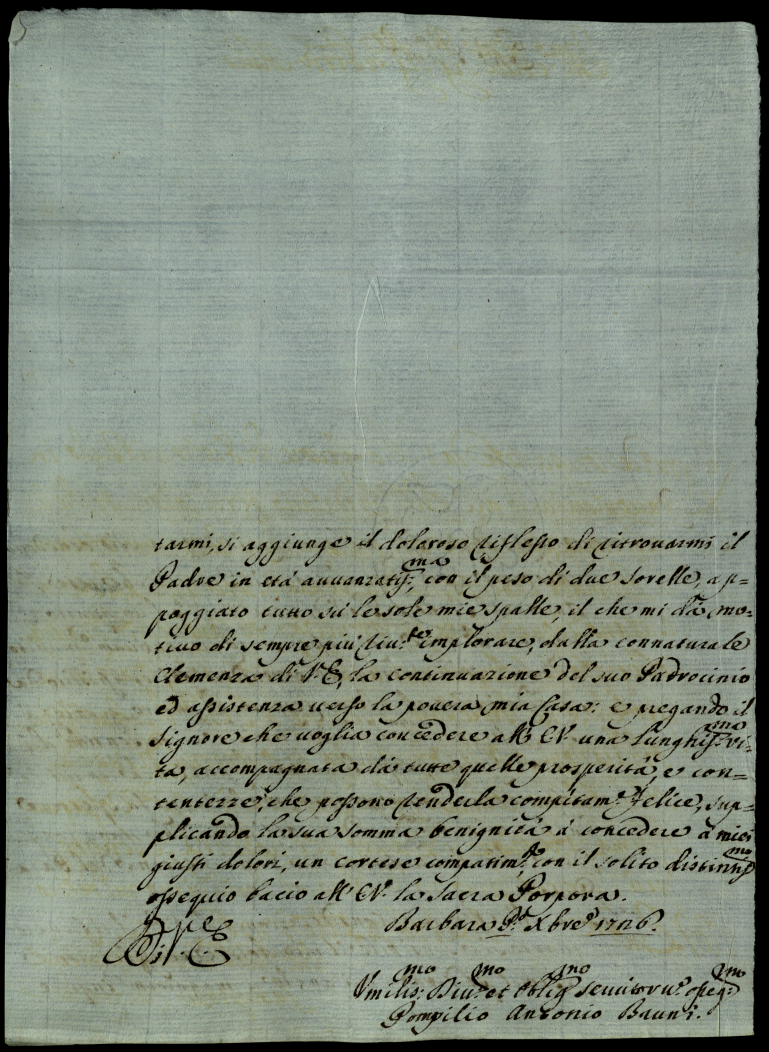 tarmi, si aggiunge il doloroso riflesso di ritrouarmi il
Padre in etá auuanzatiss:ma, con il peso di due sorelle, ap=
poggiato tutto sú le sole mie spalle, il che mi dá mo=
tiuo di sempre più riu:te implorare, dalla connaturale
Clemenza di V: E, la continuazione del suo Padrocinio
ed assistenza uerso la pouera mia Casa: e pregando il
Signore che uoglia concedere all' EV una lunghiss:ma ui=
ta, accompagnata dá tutte quelle prosperitá, e con=
tentezze, che possono renderla compitam:te felice, sup=
plicando la sua somma benignitá á concedere á miei
giusti dolori, un cortese compatim:to, con il solito distintiss:mo
ossequio bacio all' EV: la Sacra Porpora.
Barbara P:o Xbre 1726.
Di V. E
Vmiliss:mo Diu:mo et Oblig:mo seruitor u:o osseq:mo
Pompilio Antonio Bauni.